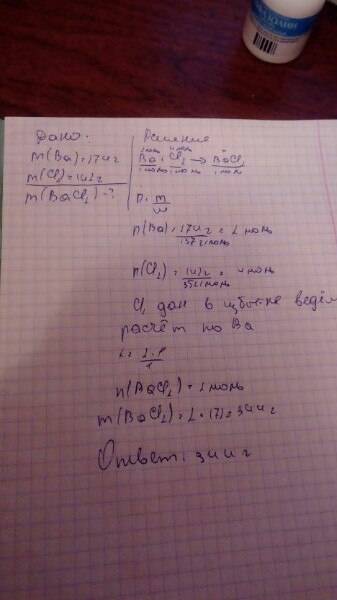 Дано:
m(Ba)=274г
m(Cl)=142г
m(BaCl₂)-?
Решение
2моль 4моль
Ba+Cl₂→BaCl₂
1моль 1моль 1моль
n=m/M
n(Ba)=274г/137г/моль=2моль
n(Cl₂)=142г/35г/моль=4моль
Cl₂ дан в избытке ведём
расчёт по Ba
n(BaCl₂)=2моль
m(BaCl₂)=2·171=344г
Ответ: 344г